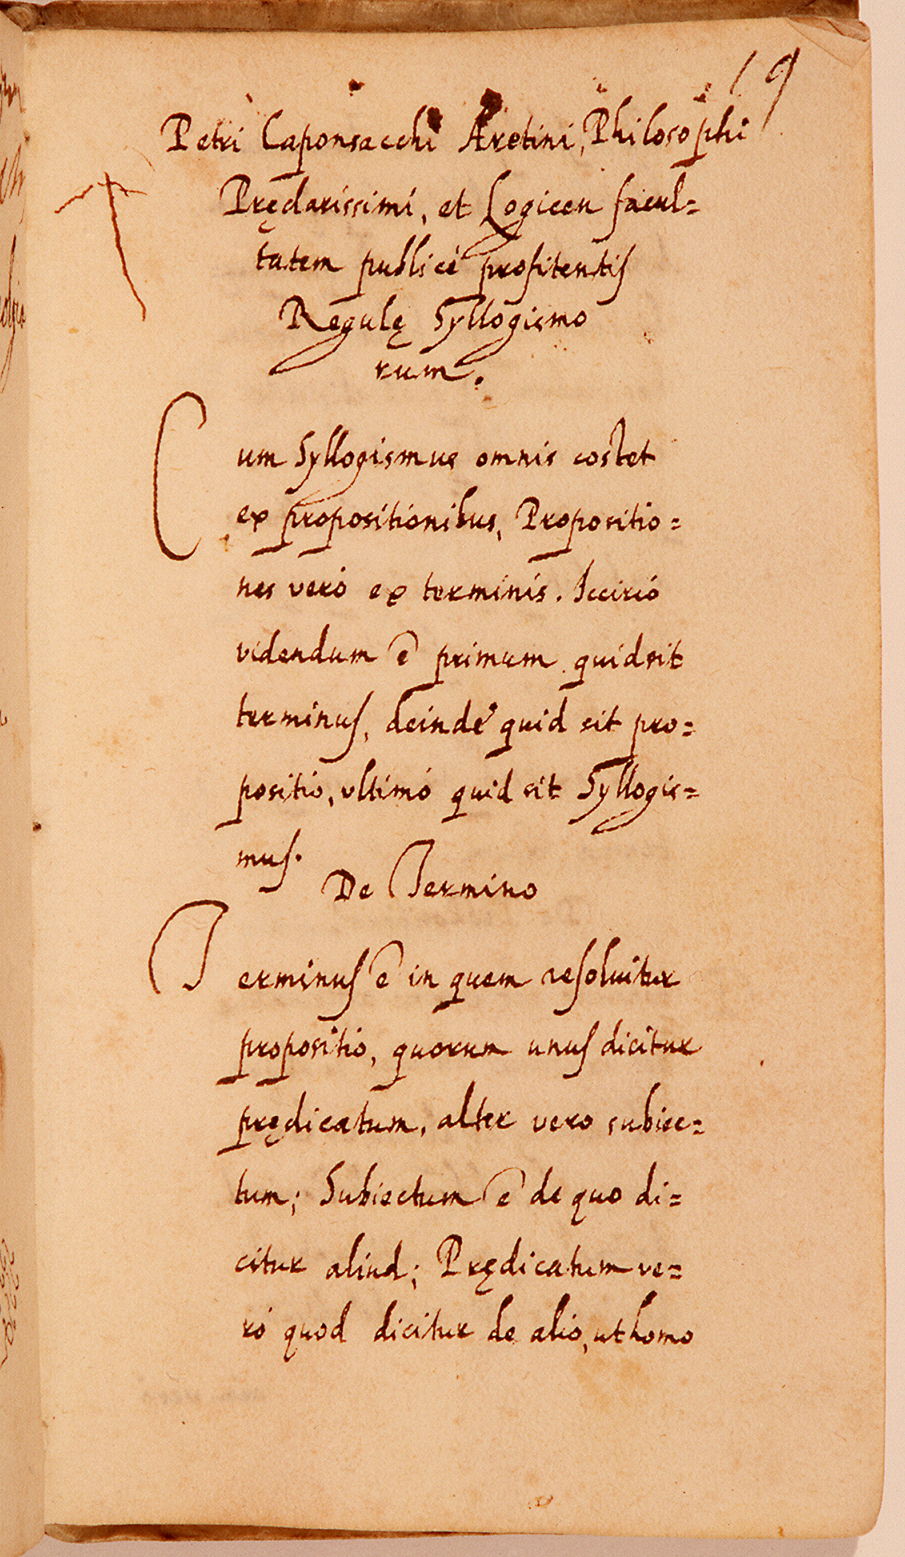 19
Petri Caponsacchi Aretini, Philosophi
Pręclarissimi, et Logicen facul=
tatem publicé profitentis
Regulę Syllogismo
rum.
Cum Syllogismus omnis costet
ex propositionibus, Propositio=
nes veró ex terminis. Iccircó
videndum ē primum quid sit
terminus, deindé quid sit pro=
positio, ultimó quid sit Syllogis=
mus.
De Termino
Terminus ē in quem resoluitur
propositio, quorum unus dicitur
prędicatum, alter vero subiec=
tum; Subiectum ē de quo di=
citur aliud; Prędicatum ve=
ró quod dicitur de alio, ut homo